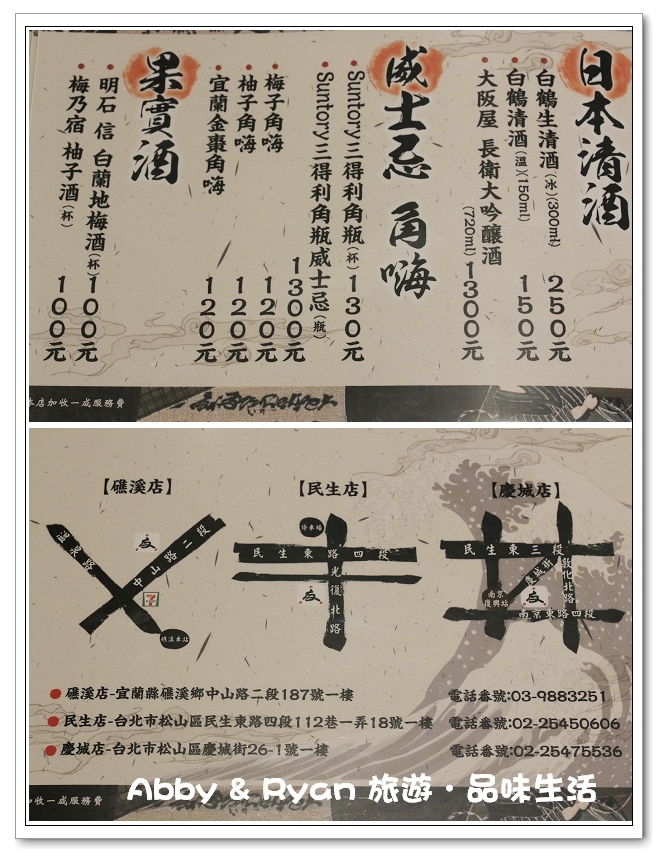 日本清酒
白鶴生清酒(冰)(300ml) 250元
白鶴清酒(溫)(150ml) 150元
大阪屋 長衛大吟釀酒(720ml) 1300元
威士忌 角嗨
Suntory三得利角瓶(杯) 130元
Suntory三得利角瓶威士忌(瓶) 1300元
梅子角嗨 120元
柚子角嗨 120元
宜蘭金棗角嗨 120元
果實酒
明石 信 白蘭地梅酒(杯) 100元
梅乃宿 柚子酒(杯) 100元
本店加收一成服務費
【礁溪店】
溫泉路
中山路二段
7
礁溪車站
【民生店】
停車場
民生東路四段
光復北路
【慶城店】
民生東三段
慶城街
敦化北路
南京復興站
南京東路四段
礁溪店-宜蘭縣礁溪鄉中山路二段187號一樓 電話番號:03-9883251
民生店-台北市松山區民生東路四段112巷一弄18號一樓 電話番號:02-25450606
慶城店-台北市松山區慶城街26-1號一樓 電話番號:02-25475536
加收一成服務費
Abby & Ryan 旅遊・品味生活